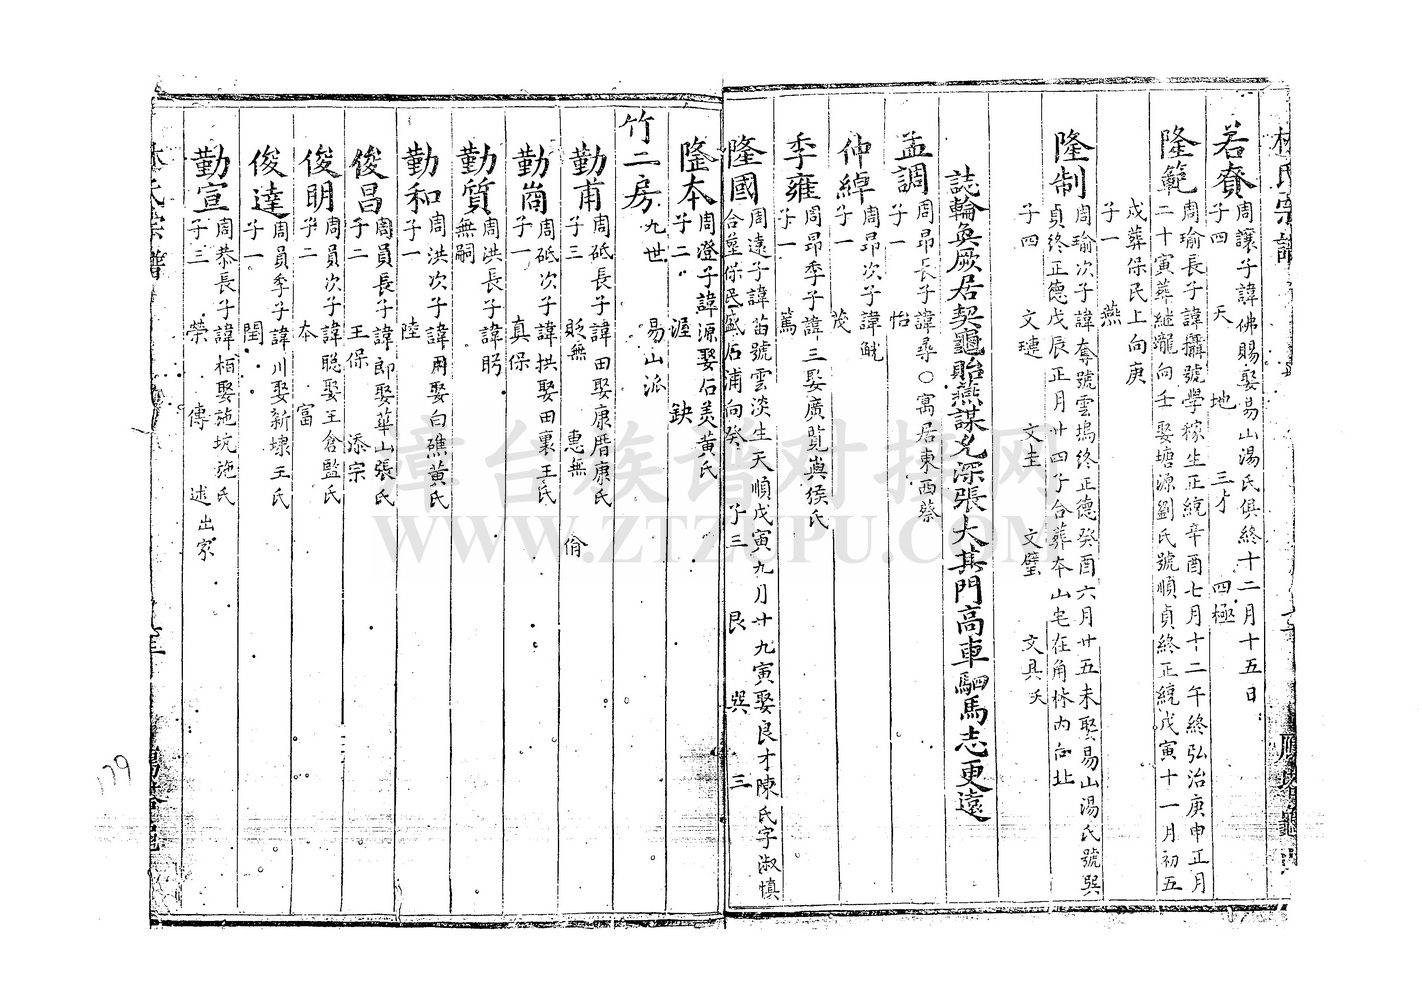 林氏宗譜
若賚
周讓子諱佛賜娶易山湯氏俱終十二月十五日
子四 天 地 三才 四極
隆範
周瑜長子諱攝號學稼生正統辛酉七月十二午終弘治庚申正月
二十寅葬繼瀧向壬娶塘源劉氏號順貞終正統戊寅十一月初五
戌葬保民上向庚
子一 燕
隆制
周瑜次子諱奪號雲塢終正德癸酉六月廿五未娶易山湯氏號巽
貞終正德戊辰正月廿四子合葬本山宅在角林內向北
子四 文璉 文圭 文璧 文具夭
誌輪奐厥居契龜貽燕謀尤深張大其門高車駟馬志更遠
孟調
周昂長子諱尋○寓居東西蔡
子一 怡
仲綽
周昂次子諱
子一 茂
季雍
周昂季子諱三娶廣覽嶼侯氏
子一 篤
隆國
周遠子諱苗號雲淡生天順戊寅九月廿九寅娶良才陳氏字淑慎
合墓保民盛后浦向癸 子三 艮 巽 三
隆本
周澄子諱源娶石美黃氏
子二 渥 鈌
竹二房
九世 易山派
勤甫
周砥長子諱田娶康厝康氏
子三 貶無 惠無 脩
勤崗
周砥次子諱拱娶田裏王氏
子一 真保
勤質
周洪長子諱
無嗣
勤和
周洪次子諱用娶白礁黃氏
子一 陸
俊昌
周員長子諱郎娶華山張氏
子二 王保 添宗
俊明
周員次子諱聰娶王倉監氏
子二 本 富
俊達
周員季子諱川娶新埭王氏
子一 閏
勤宣
周恭長子諱栢娶施坑施氏
子三 榮 傳 述出家
林氏宗譜
179
章台族谱对接网
WWW.ZTZUPU.COM